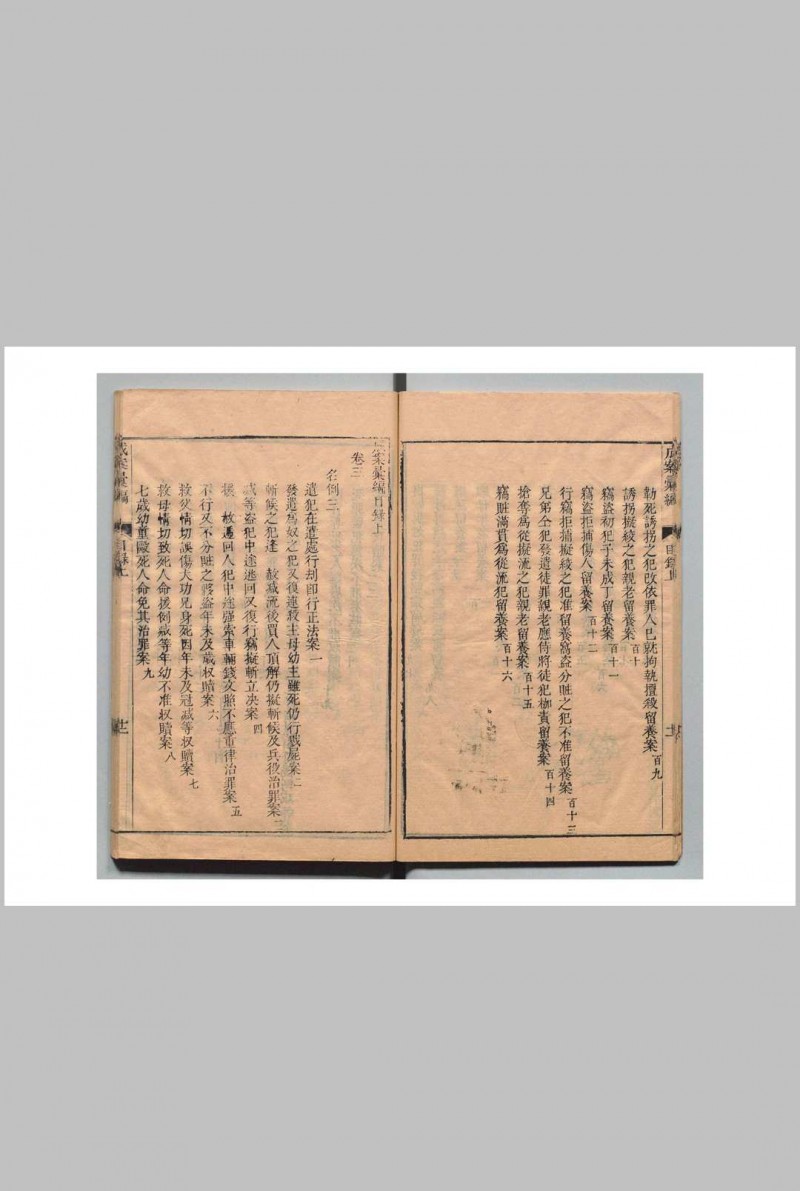 成案彙編
目錄上
勒死誘拐之犯改依罪人已就拘執擅殺留養案 百九
誘拐擬絞之犯親老留養案 百十
竊盜初犯子未成丁留養案 百十一
竊盜拒捕傷人留養案 百十二
行竊拒捕擬絞之犯准留養窩盜分贓之犯不准留養案 百十三
兄弟仝犯發遣徒罪親老應侍將徒犯枷責留養案 百十四
搶奪為從擬流之犯親老留養案 百十五
竊贓滿貫為從流犯留養案 百十六
案彙編目錄上
卷三
名例三
遣犯在遣處行刦即行正法案 一
發遣為奴之犯又復連殺主母幼主雖死仍行戮屍案 二
斬候之犯逢 赦減流後買人頂解仍擬斬候及兵役治罪案 三
減等盜犯中途逃回又復行竊擬斬立決案 四
援 赦遞回人犯中途強索車輛錢文照不應重律治罪案 五
不行又不分贓之夥盜年未及歲收贖案 六
救父情切誤傷大功兄身死因年未及冠減等收贖案 七
救母情切致死人命援例減等年幼不准收贖案 八
七歲幼童毆死人命免其治罪案 九
成案彙編
目錄上